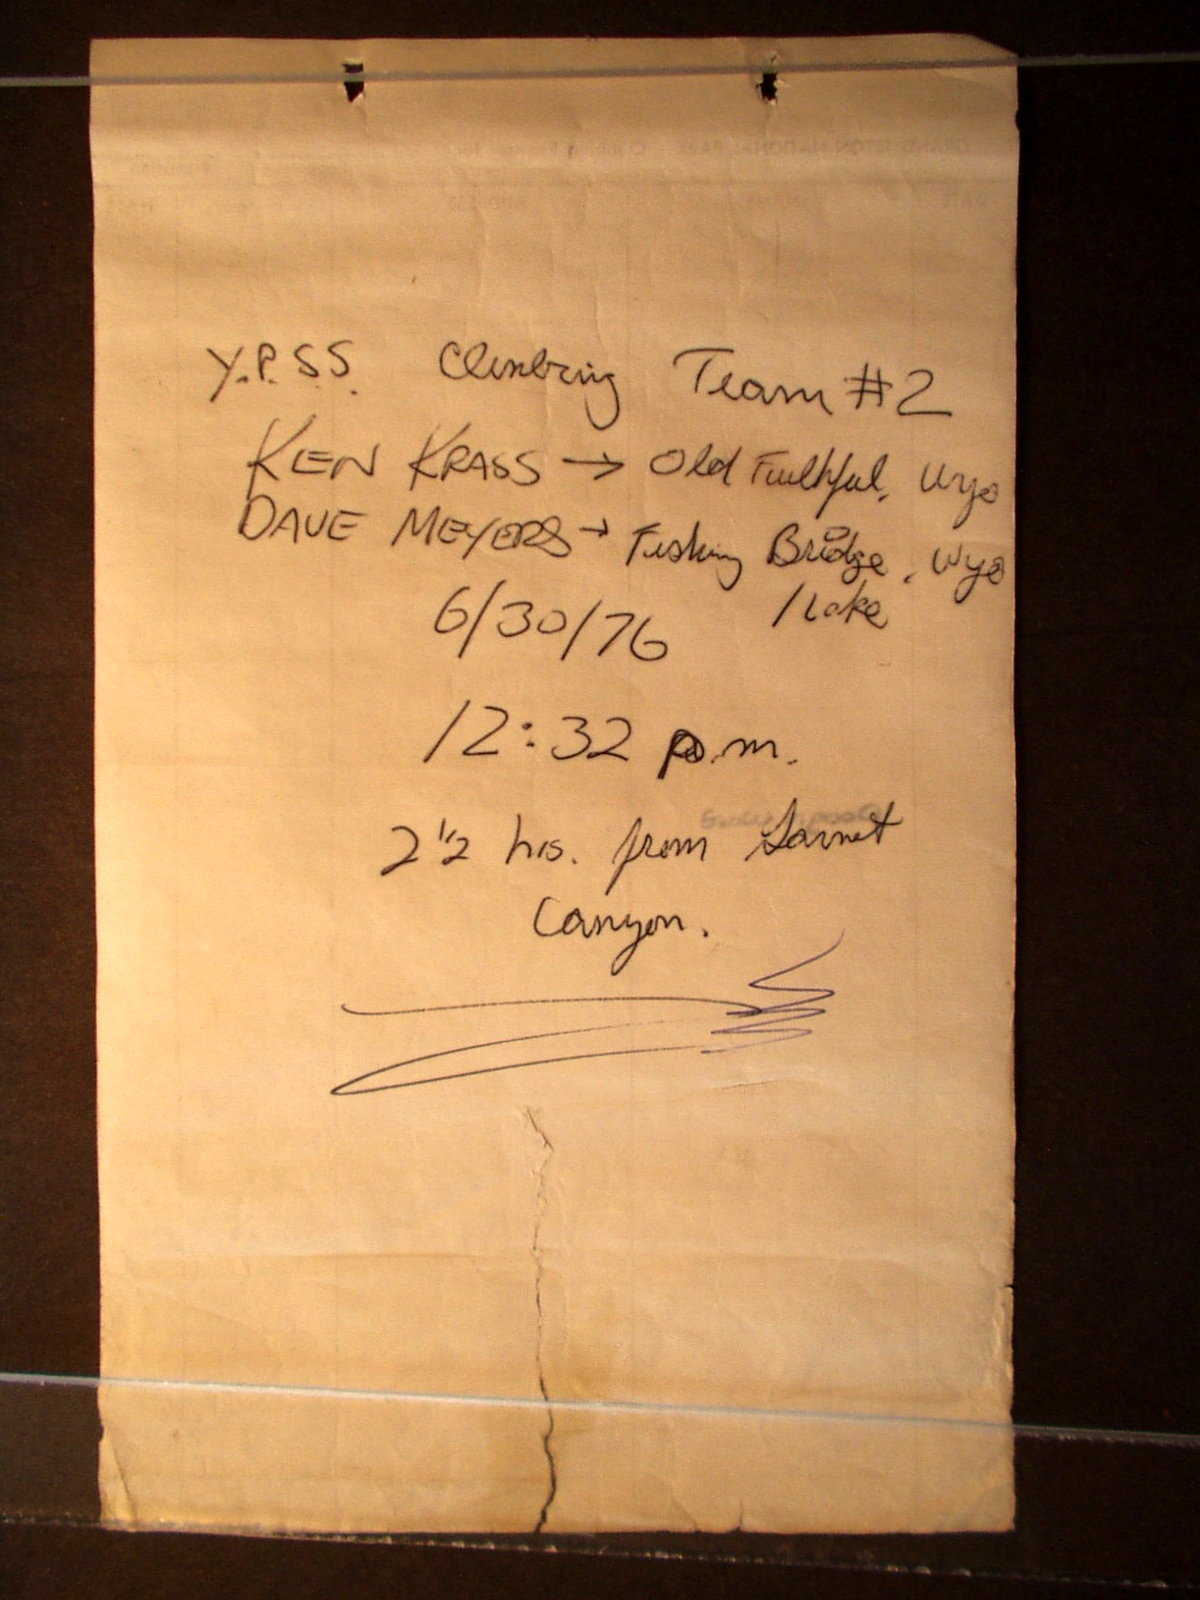 Y.P.S.S. Climbing Team #2
KEN KRASS → Old Faithful, Wyo
DAVE MEYERS → Fishing Bridge, Wyo
/Lake
6/30/76
12:32 p.m.
2 1/2 hrs. from Garnet
Canyon.